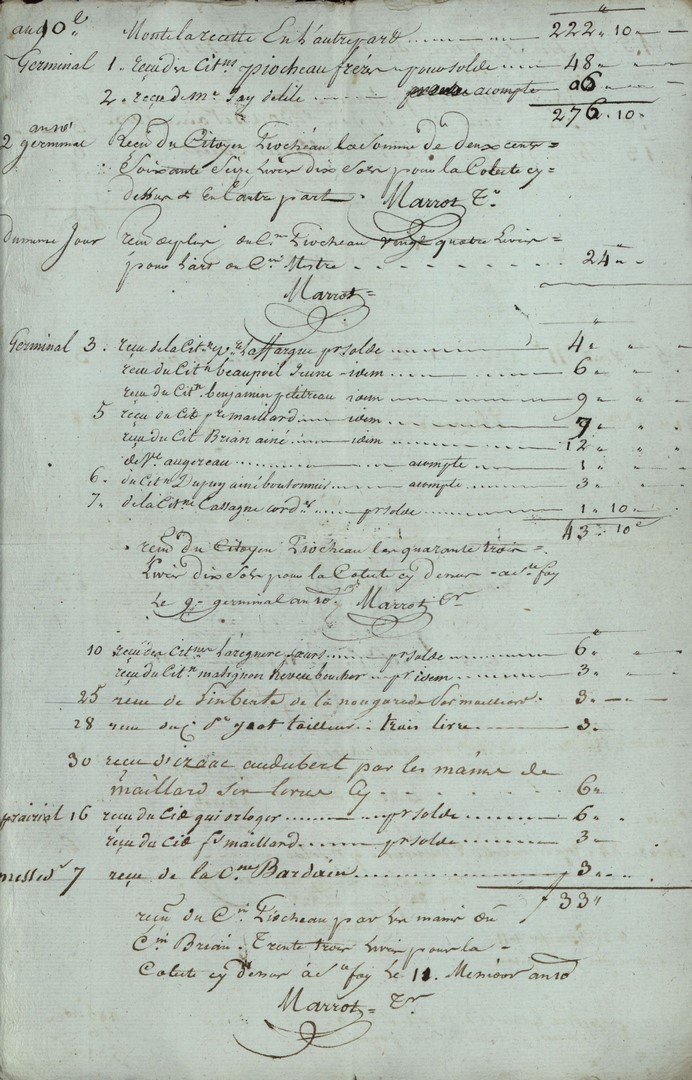 an 10e Monte la recette En L'autre part 222 " 10
Germinal 1. reçu des Citns piocheau frère pour solde 48
2. reçu de Mr Say acompte 06
276 " 10
2 germinal Recu Du Citoyen Piochéau la Somme de Deux cents
Soixante Seize Livres dix Sols pour la Colecte cy
dessus & En L'autre part. Marrot Tr
Du meme Jour recu de plus du Cn Piocheau vingt quatre Livres
pour L'art du Cn Mestre 24
Marrot
Germinal 3. reçu de la Citne Laffargue pr solde 4
reçu du Citn beaupoil Jeune idem 6
reçu du Citn benjamin petitreau idem 9
5 reçu du Cit pre maillard idem 7
reçu du Cit Brian ainé idem 12
de Ve augereau acompte 1
6. du Citn Dupuy ainé boutonnié acompte 3
7. de la Citne Cassagne cordr pr solde 1 " 10
43 " 10
reçu du Citoyen Piocheau les quarante trois
Livres dix Sols pour la Colecte cy dessus a Ste foy
Le 9 germinal an 10 Marrot Tr
10 reçu des Citnes Sœurs pr solde 6
reçu du Citn matignon Neveu boucher pr idem 3
25 reçu de de la nougarede 3
28 reçu du C. tailleur trois livre 3
30 reçu d'izaac audubert par les mains de
maillard 6
prairial 16 reçu du Cit qui orloger pr solde 6
reçu du Cit fs maillard pr solde 3
messidr 7 reçu de la Cne Bardain 3
33
reçu du Cn Piocheau par les mains du
Cin Brian. Trente trois Livres pour la
Colecte cy dessus a Ste foy Le 11 Messidor an 10
Marrot Tr